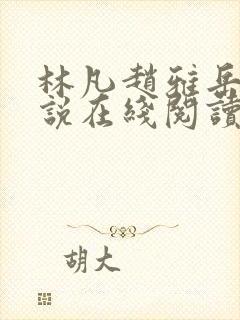 林凡趙雅岳
說在綫閱讀
胡大